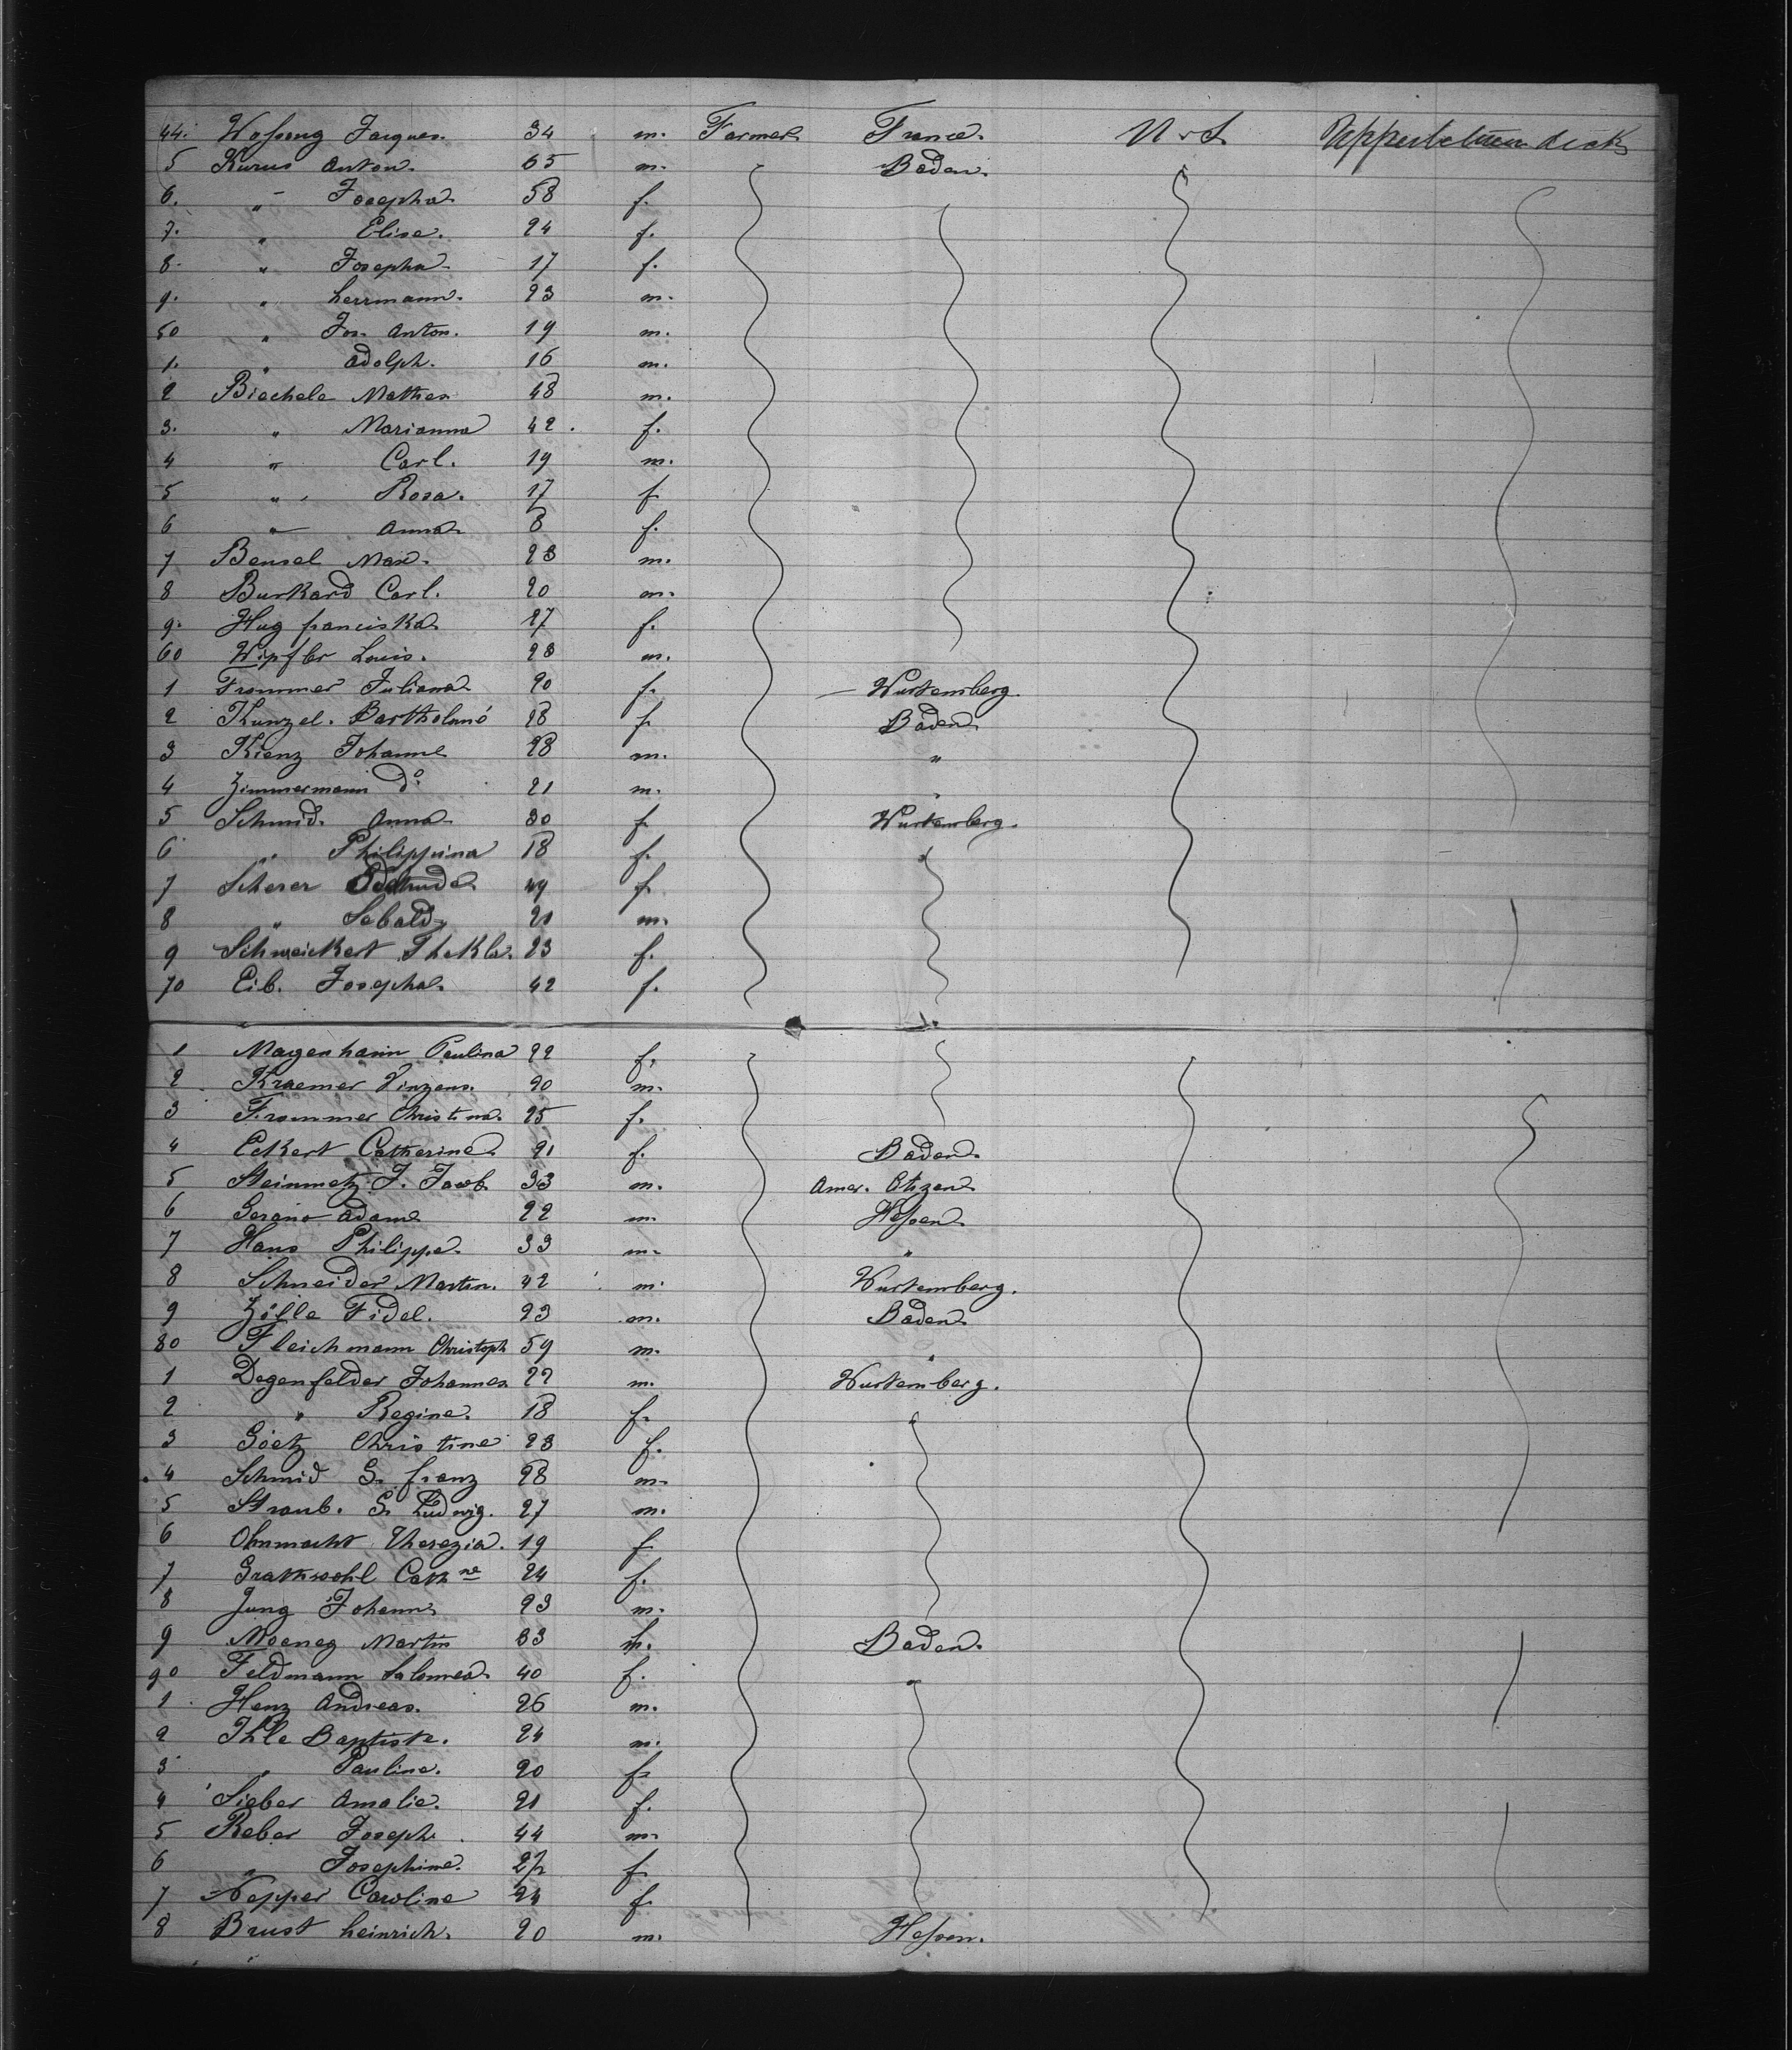 44. Wofsong Jacques. 34 m. Farmer France. U. S. Upper between deck
5 Kurus Anton. 65 m. Baden.
6. " Josepha 58 f.
7. " Elise. 24 f.
8. " Josepha 17 f.
9. " herrmann. 23 m.
50 " Jos. Anton. 19 m.
1. " Adolph. 16 m.
2 Biechele Mathes 48 m.
3. " Marianna 42. f.
4 " Carl. 19 m.
5 " Rosa. 17 f.
6 " Anna 8 f.
7 Bensel Max. 23 m.
8 Burkard Carl. 20 m.
9. Hug franciska 27 f.
60 Wipfler Louis. 23 m.
1 Frommer Juliana 20 f. Wurtemberg.
2 Kunzel. Bartholomé 28 f. Baden
3 Kienz Johanne 28 m. "
4 Zimmermann do. 21 m. "
5 Schmid. Anna 30 f. Wurtemberg.
6 " Philippina 18 f. "
7 Scherer 49 f.
8 " Sebald 21 m.
9 Schweickert Thekla. 23 f.
70 Eib. Josepha. 42 f.
1 Magenhann Paulina 22 f.
2 Kraemer Vinzens. 20 m.
3 Frommer Christina. 25 f.
4 Eckert Catherine 21 f. Baden.
5 Steinmetz J. Jacob 33 m. Amer. Citizen
6 Adam 22 m. Hessen
7 Hans Philippe. 33 m. "
8 Schneider Martin. 42 m. Wurtemberg.
9 Zölle Fidel. 23 m. Baden
80 Fleichmann Christoph 59 m. "
1 Degenfelder Johannes 22 m. Wurtemberg.
2 " Regine. 18 f. "
3 Goetz Christine 23 f.
4 Schmid G. franz 28 m.
5 Straub. G. Ludwig. 27 m.
6 Ohnmacht Therezia. 19 f.
7 Grathwohl Cathne 24 f.
8 Jung Johann 23 m.
9 Moeneg Martin 33 m. Baden.
90 Feldmann Salomea. 40 f. "
1 Henz Andreas. 26 m.
2 Ihle Baptiste. 24 m.
3 " Pauline. 20 f.
4 Sieber Amalie. 21 f.
5 Reber Joseph. 44 m.
6 " Josephine. 27 f.
7 Nepper Caroline 24 f.
8 Brust heinrich. 20 m. Hessen.